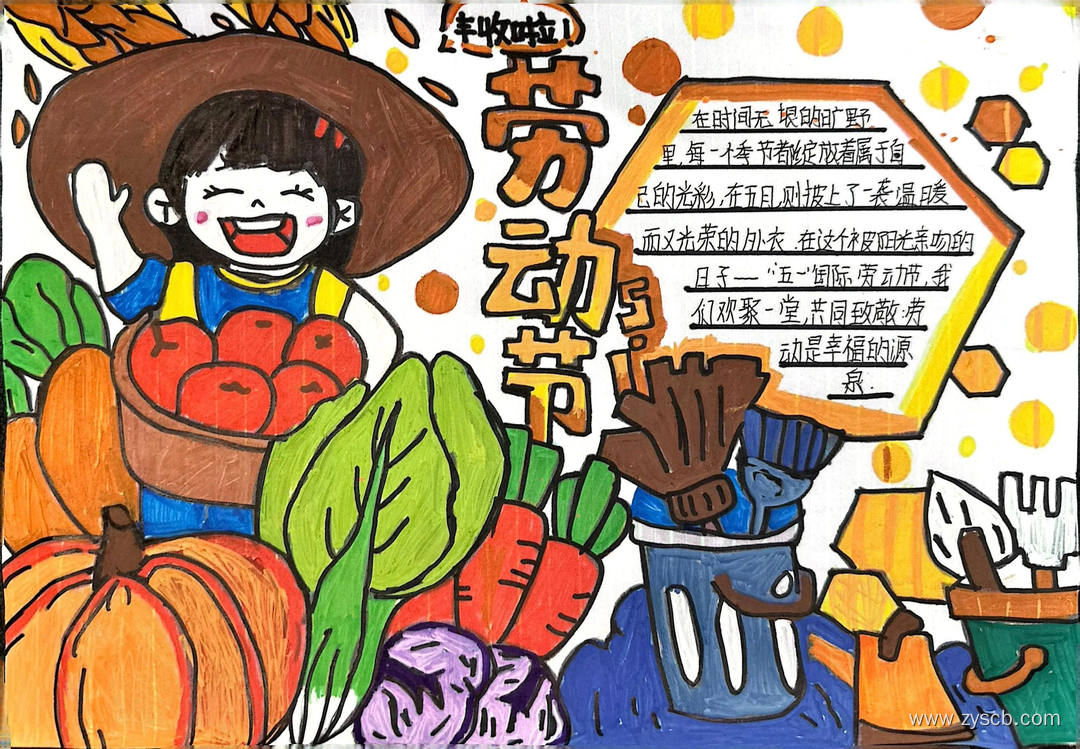 丰收啦！
劳动节
5.1
在时间无垠的旷野
里,每一个季节都绽放着属于自
己的光彩,在五月,则披上了一袭温暖
而又光荣的外衣.在这个被阳光亲吻的
日子——“五一”国际劳动节,我
们欢聚一堂,共同致敬:劳
动是幸福的源
泉.
www.zyscb.com